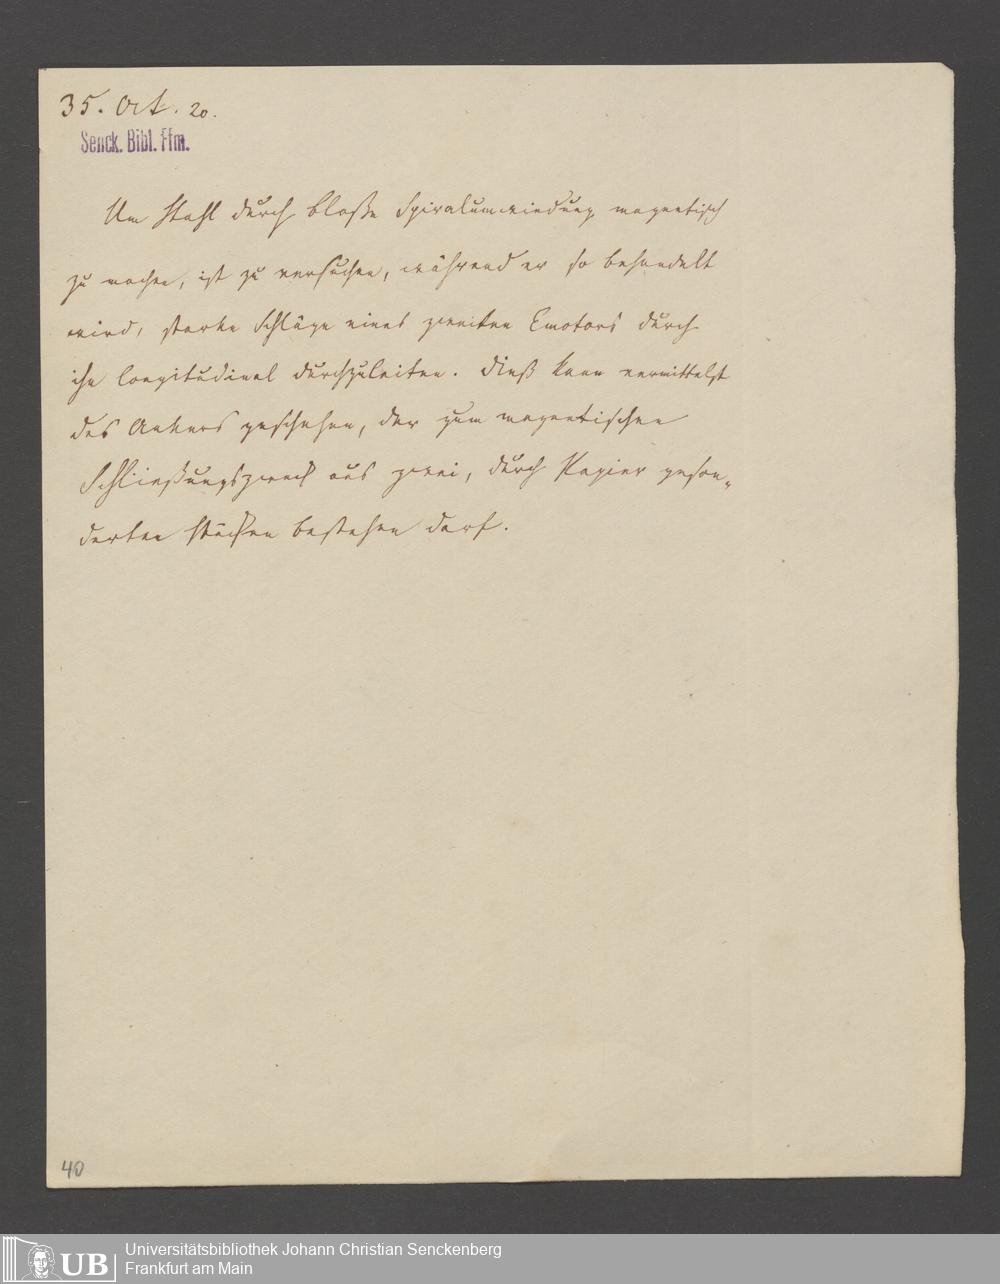 35. Oct. 20.
Senck. Bibl. Ffm.
Um Stahl durch bloße Spiralumwindung magnetisch
zu machen, ist zu versuchen, während er so behandelt
wird, starke Schläge eines zweiten Emotors durch
ihn longitudinal durchzuleiten. Dieß kann vermittelst
des Ankers geschehen, der zum magnetischen
Schließungszweck aus zwei, durch Papier geson„
derten Stücken bestehen darf.
40
UB
Universitätsbibliothek Johann Christian Senckenberg
Frankfurt am Main